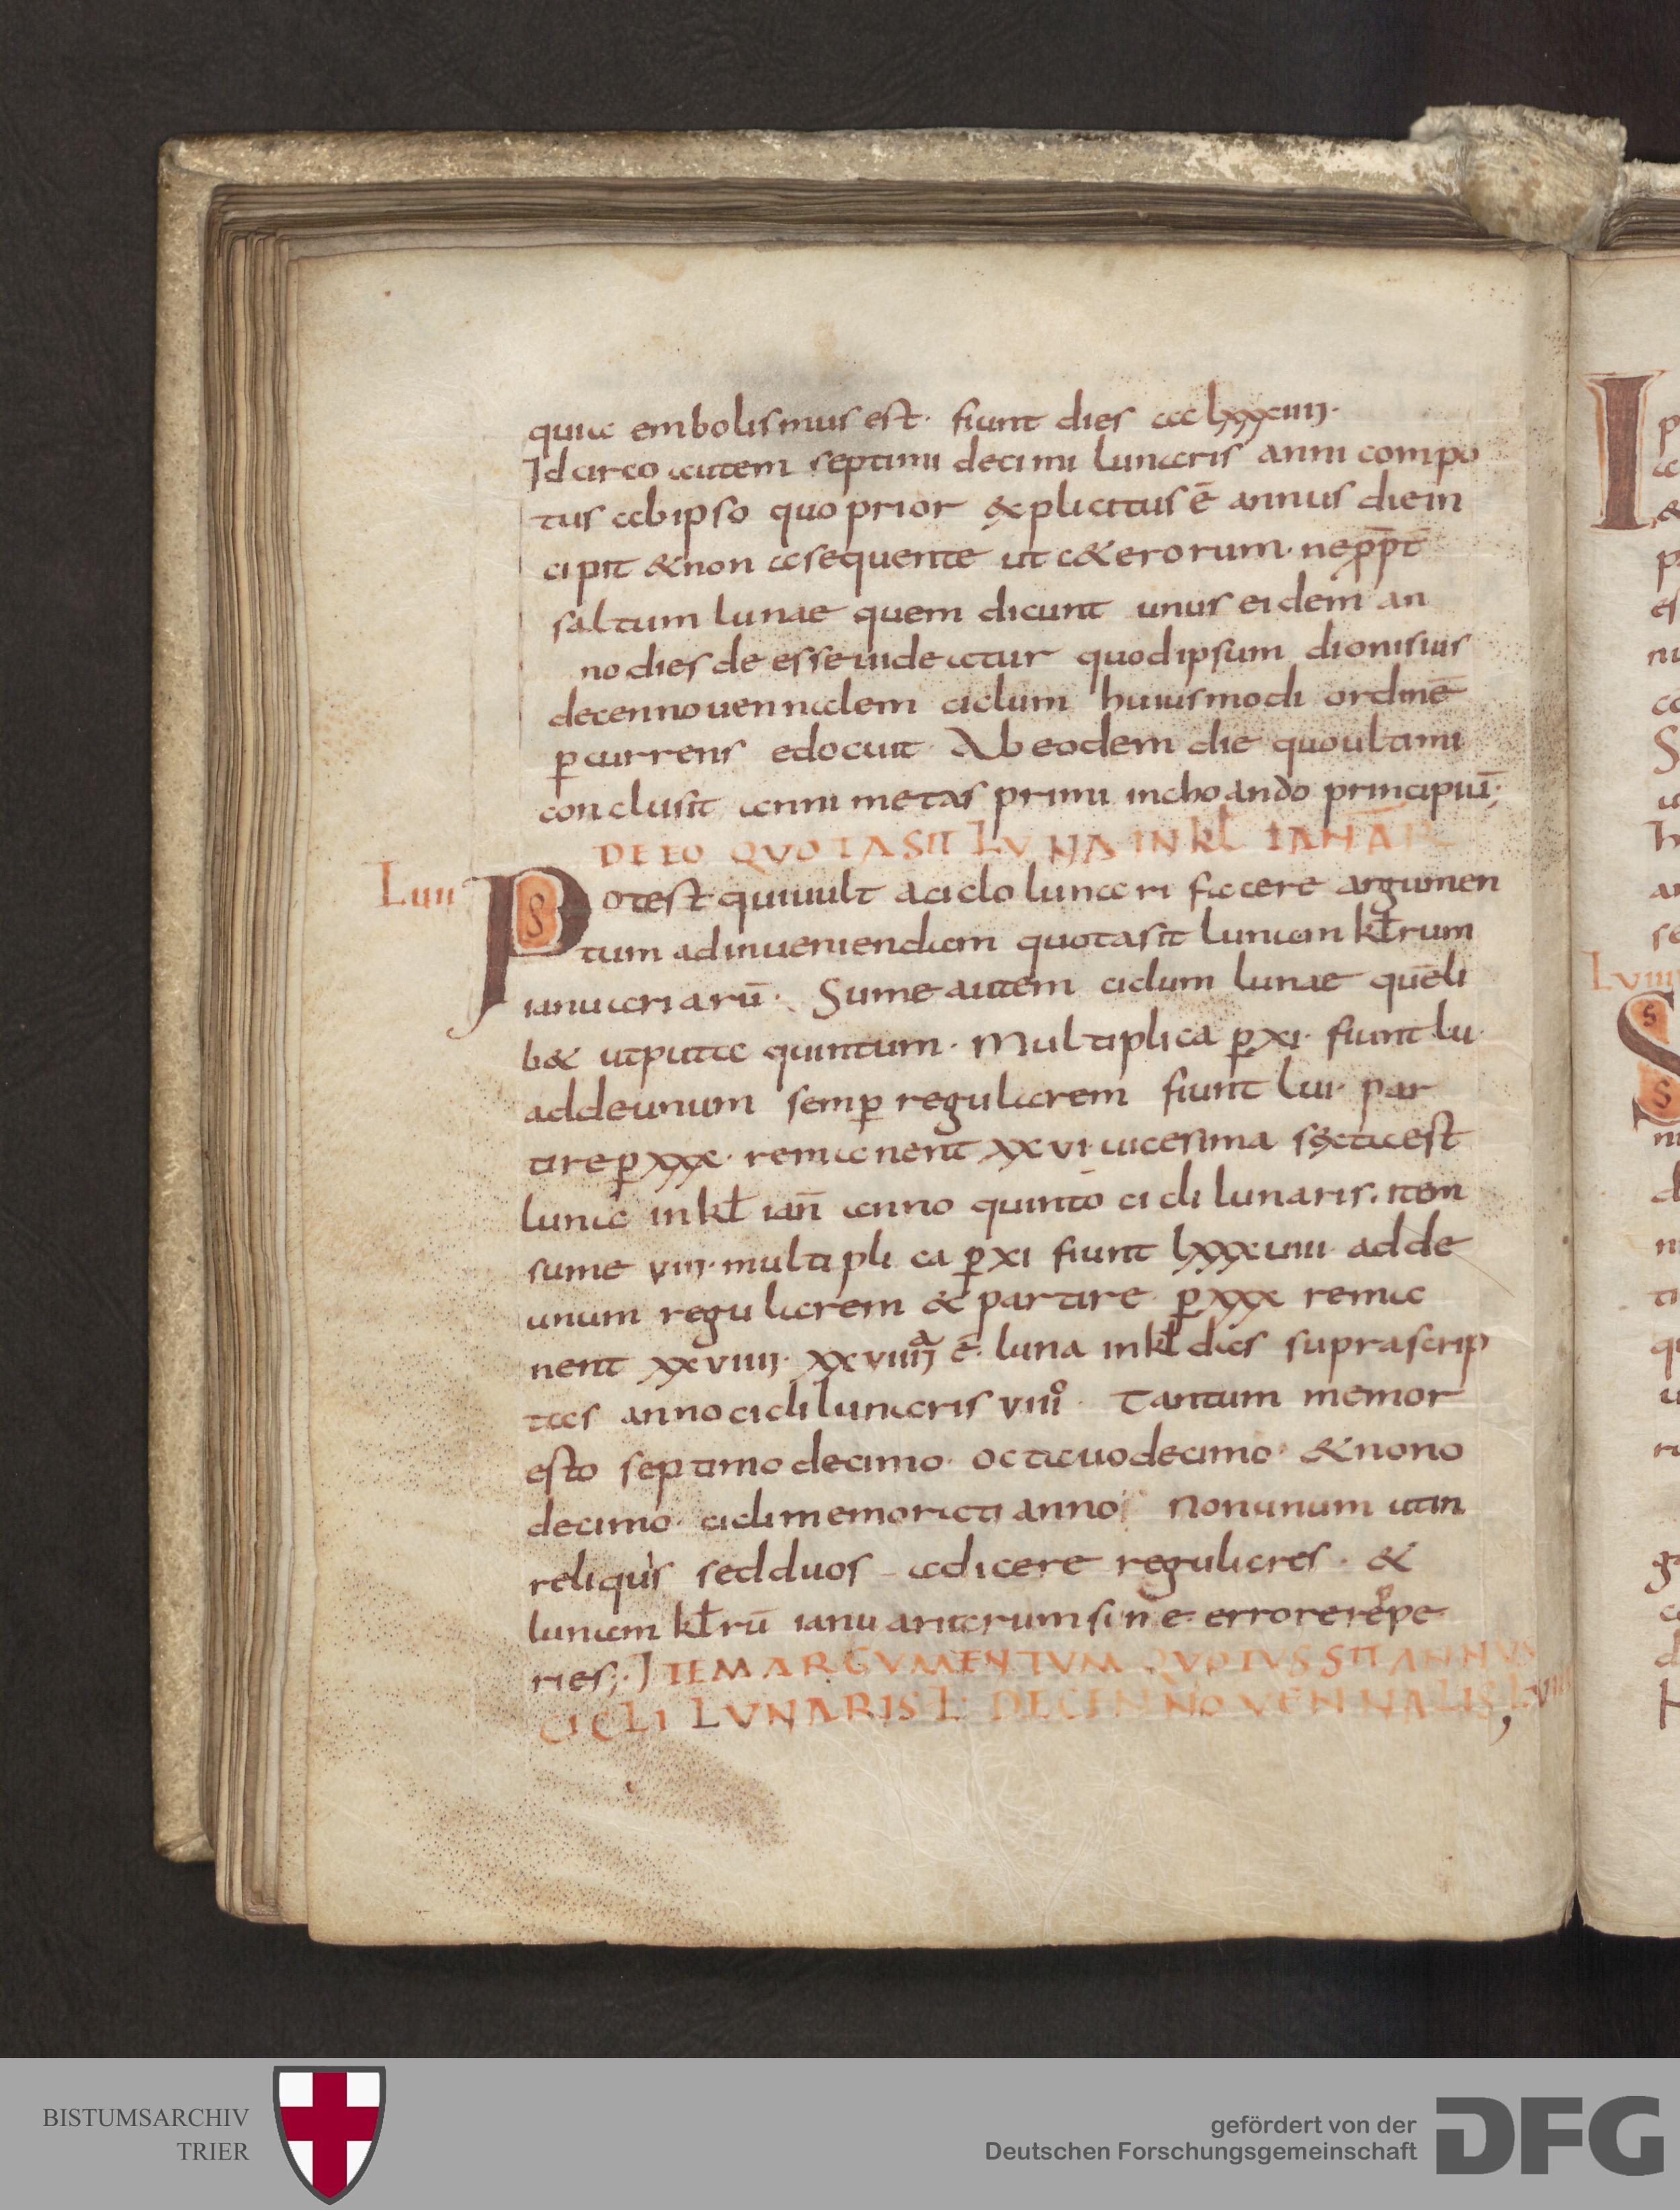 quia embolismus est. fiunt dies ccclxxxiiii.
Idcirco autem septimi decimi lunaris anni compo
tus ab ipso quo prior explicitus ē annus die in
cipit & non a sequente ut c&erorum. ne pp̄t
saltum lunae quem dicunt unus eidem an
no dies de esse uideatur quod ipsum dionisius
decennouennalem ciclum huiusmodi ordinē
ꝑcurrens edocuit. Ab eodem die quo ultimi
conclusit anni metas primi inchoando principiū;
DE EO QVOTA SIT LVNA IN KL IANAR
LVII
Potest qui uult a ciclo lunari facere argumen
tum ad inueniendam quota sit lunam kɫrum
ianuariarū. Sume autem ciclum lunae quē li
b& utputa quintum. Multiplica ꝑ xi. fiunt lu.
adde unum semꝑ regularem fiunt lui. par
tire ꝑ xxx. remanent xxvi. uicesima sexta est
luna in kɫ ian̄ anno quinto cicli lunaris. item
sume viiii. multiplica ꝑ xi fiunt lxxxuiiii adde
unum regularem & partire ꝑ xxx rema
nent xxviiii. xxviiiiª ē. luna in kɫdas suprascrip
tas anno cicli lunaris viiiº. Tantum memor
esto septimo decimo. octauo decimo. & nono
decimo. cicli memorati anno non unum ut in
reliquis sed duos adicere regulares. &
lunam kɫrū ianuariarum sine errore repe
ries;. ITEM ARGVMENTVM QVOTVS SIT ANNVS
CICLI LVNARIS Ł DECENNOVENNALIS LVIII
LVIII
BISTUMSARCHIV
TRIER
gefördert von der
Deutschen Forschungsgemeinschaft
DFG